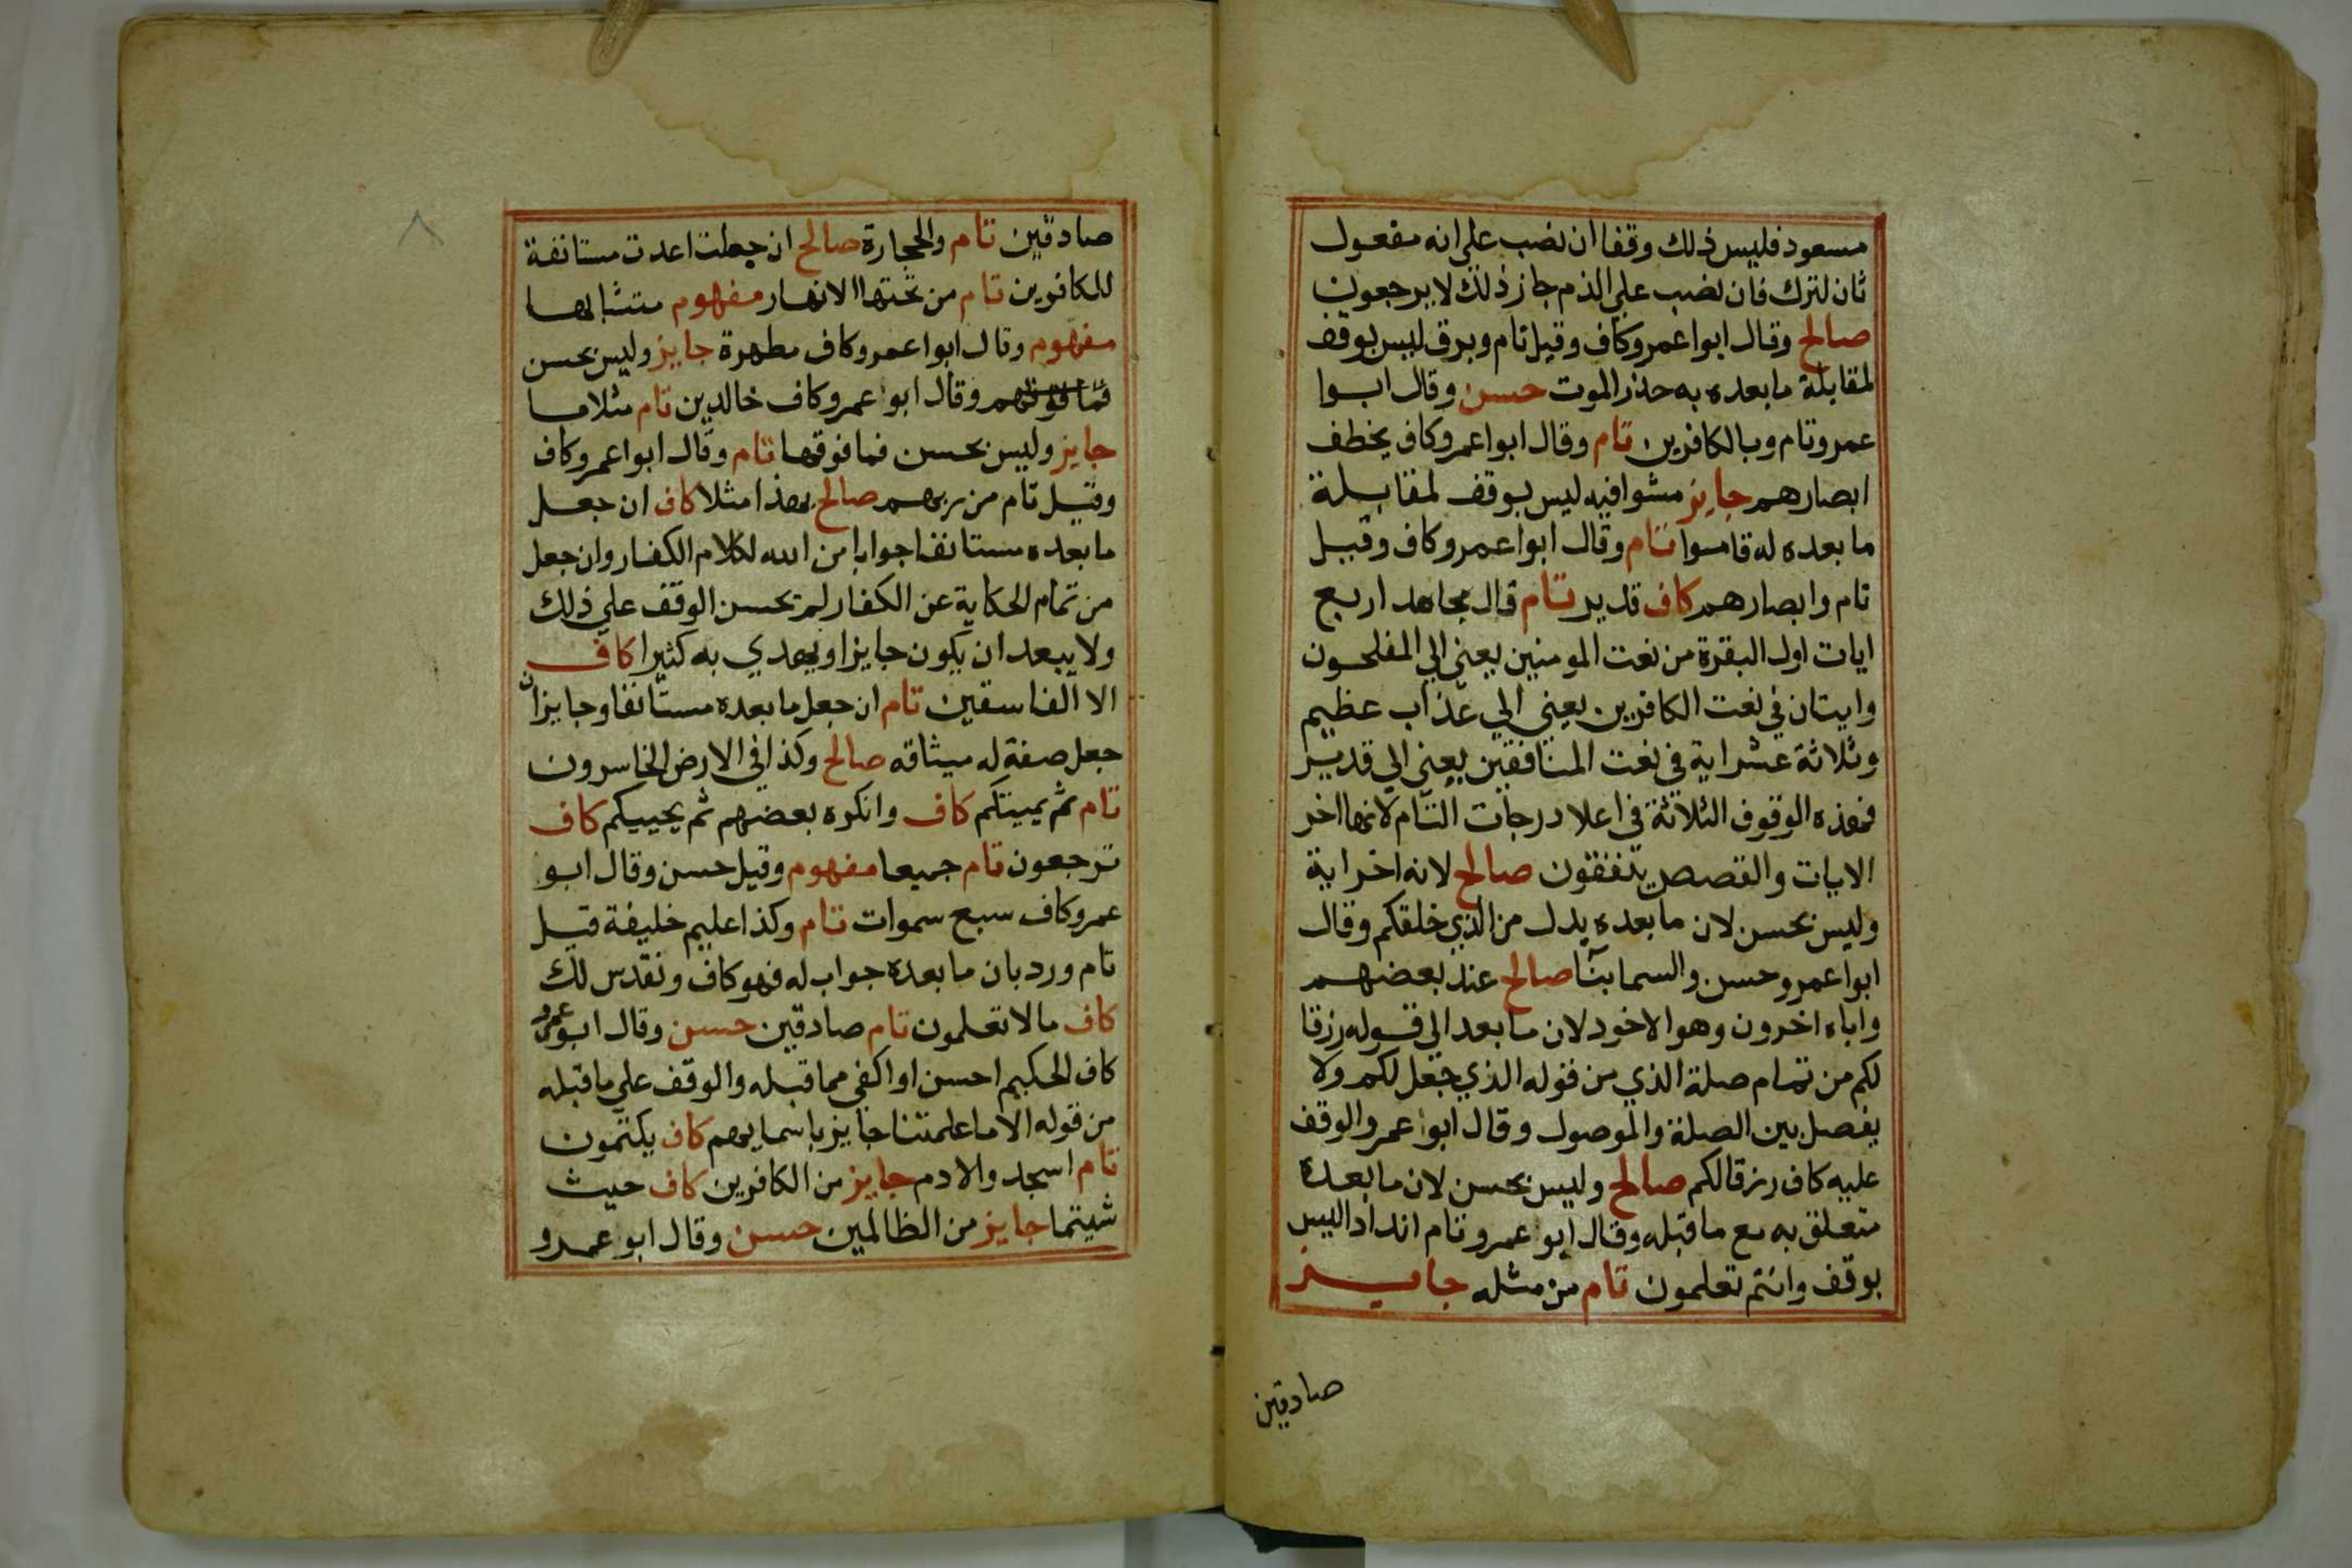 مسعود فليس ذلك وقفا ان نصب على انه مفعول
ثان لترك فان نصب علي الذم جاز ذلك لا يرجعون
صالح وقال ابوا عمرو كاف وقيل تام وبرق ليس بوقف
لمقابلة ما بعده به حذر الموت حسن وقال ابوا
عمرو تام وبالكافرين تام وقال ابوا عمرو كاف يخطف
ابصارهم جايز مشوا فيه ليس بوقف لمقابلة
ما بعده له قاموا تام وقال ابوا عمرو كاف وقيل
تام وابصارهم كاف قدير تام قال مجاهد اربع
ايات اول البقرة من نعت المومنين يعني الي المفلحون
وايتان في نعت الكافرين يعني الي عذاب عظيم
وثلاثة عشر اية في نعت المنافقين يعني الي قدير
فهذه الوقوف الثلاثة في اعلا درجات التام لانها اخر
الايات والقصص يتفقون صالح لانه اخر اية
وليس بحسن لان ما بعده بدل من الذي خلقكم وقال
ابوا عمرو حسن والسما بنآ صالح عند بعضهم
واباه اخرون وهو الاخود لان ما بعد الي قوله رزقا
لكم من تمام صلة الذي من قوله الذي جعل لكم ولا
يفصل بين الصلة والموصول وقال ابوا عمرو الوقف
عليه كاف رزقا لكم صالح وليس بحسن لان ما بعده
متعلق به مع ما قبله وقال ابوا عمرو تام اندادا ليس
بوقف وانتم تعلمون تام من مثله جايز
صادقين
٨
صادقين تام والحجارة صالح ان جعلت اعدت مستانفة
للكافرين تام من تحتها الانهار مفهوم متشابها
مفهوم وقال ابوا عمرو كاف مطهرة جايز وليس بحسن
فما فوقهم وقال ابوا عمرو كاف خالدين تام مثلا ما
جايز وليس بحسن فما فوقها تام وقال ابوا عمرو كاف
وقيل تام من ربهم صالح بهذا مثلا كاف ان جعل
ما بعده مستانفا جوابا من الله لكلام الكفار وان جعل
من تمام الحكاية عن الكفار لم يحسن الوقف علي ذلك
ولا يبعد ان يكون جايزا ويهدي به كثيرا كاف
الا الفاسقين تام ان جعل ما بعده مستانفا وجايزا ان
جعل صفة له ميثاقه صالح وكذا في الارض الخاسرون
تام ثم يميتكم كاف وانكره بعضهم ثم يحييكم كاف
ترجعون تام جميعا مفهوم وقيل حسن وقال ابو
عمرو كاف سبع سموات تام وكذا عليم خليفة قيل
تام ورد بان ما بعده جواب له فهو كاف ونقدس لك
كاف مالا تعلمون تام صادقين حسن وقال ابو عمرو
كاف الحكيم احسن او اكفي مما قبله والوقف علي ما قبله
من قوله الا ما علمتنا جايز باسمايهم كاف يكتمون
تام اسجدوا لادم جايز من الكافرين كاف حيث
شيتما جايز من الظالمين حسن وقال ابو عمرو